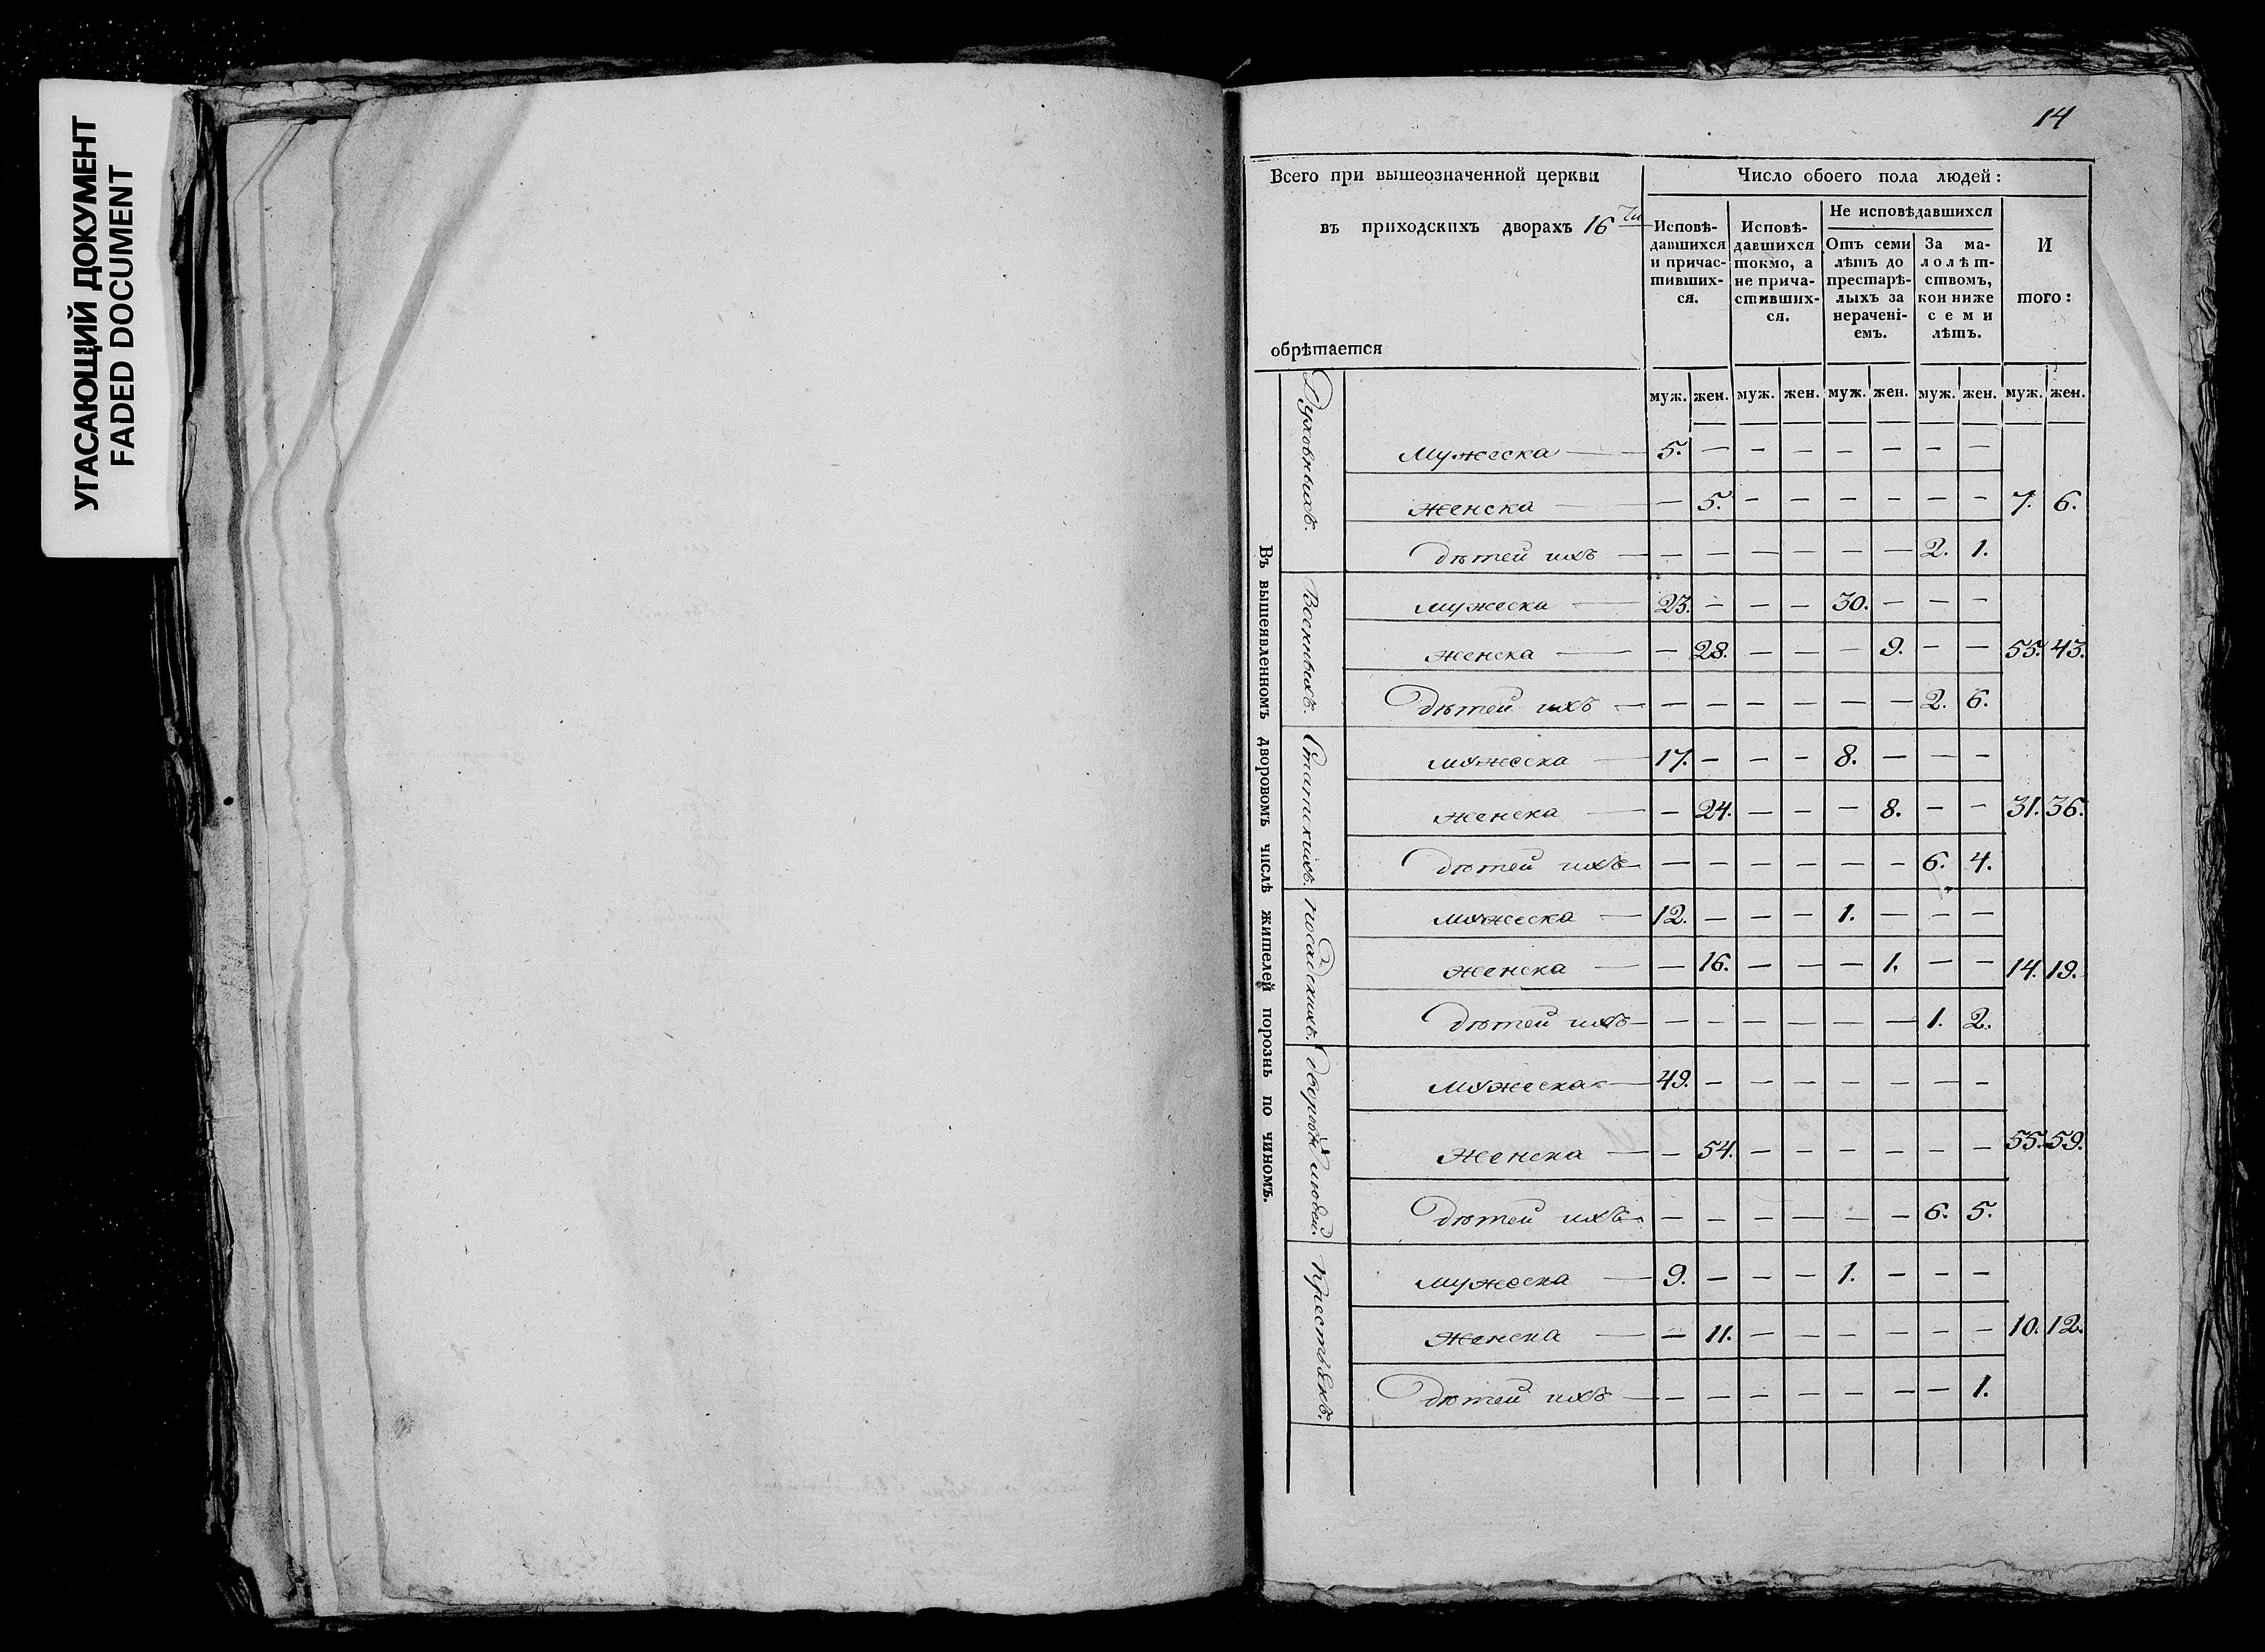 УГАСАЮЩИЙ ДОКУМЕНТ
FADED DOCUMENT
14
Всего при вышеозначенной церкви
въ приходскихъ дворахъ 16ти
обрѣтается
Число обоего пола людей:
Исповѣ-
давшихся
и причас-
тивших-
ся.
Исповѣ-
давшихся
токмо, а
не прича-
стивших-
ся.
Не исповѣдавшихся
Отъ семи
лѣтъ до
престарѣ-
лыхъ за
нераченi-
емъ.
За ма-
лолѣт-
ствомъ,
кои ниже
семи
лѣтъ.
И
того:
муж. жен. муж. жен. муж. жен. муж. жен. муж. жен.
Въ вышеявленномъ дворовомъ числѣ жителей порознь по чиномъ.
Духовныхъ.
Мужеска — 5. — — — — — — —
Женска — — 5. — — — — — — 7. 6.
Дѣтей ихъ — — — — — — — 2. 1.
Военныхъ.
Мужеска — 23. — — — 30. — — —
Женска — — 28. — — — 9. — — 55. 43.
Дѣтей ихъ — — — — — — — 2. 6.
Статскихъ.
Мужеска — 17. — — — 8. — — —
Женска — — 24. — — — 8. — — 31. 36.
Дѣтей ихъ — — — — — — — 6. 4.
Посадскихъ.
Мужеска — 12. — — — 1. — — —
Женска — — 16. — — — 1. — — 14. 19.
Дѣтей ихъ — — — — — — — 1. 2.
Дворовы людей.
Мужеска — 49. — — — — — — —
Женска — — 54. — — — — — — 55. 59.
Дѣтей ихъ — — — — — — — 6. 5.
Крестьянъ.
Мужеска — 9. — — — 1. — — —
Женска — — 11. — — — — — — 10. 12.
Дѣтей ихъ — — — — — — — — 1.